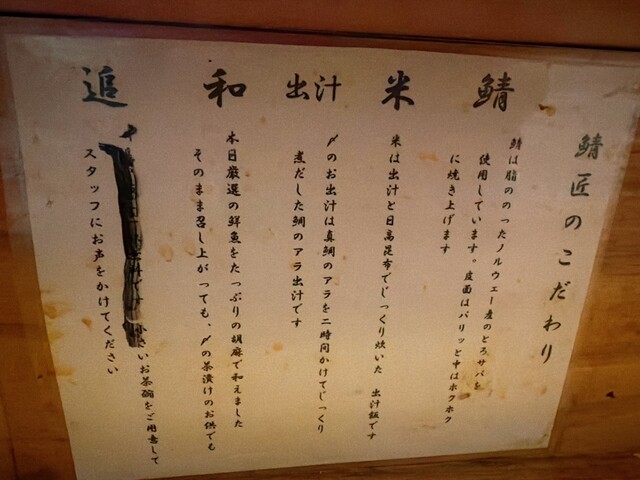 鯖匠のこだわり
鯖
鯖は脂ののったノルウェー産のとろサバを
使用しています。皮面はパリッと中はホクホク
に焼き上げます
米
米は出汁と日高昆布でじっくり炊いた 出汁飯です
出汁
〆のお出汁は真鯛のアラを二時間かけてじっくり
煮だした鯛のアラ出汁です
和
本日厳選の鮮魚をたっぷりの胡麻で和えました
そのまま召し上がっても、〆の茶漬けのお供でも
追
小さいお茶碗をご用意して
スタッフにお声をかけてください